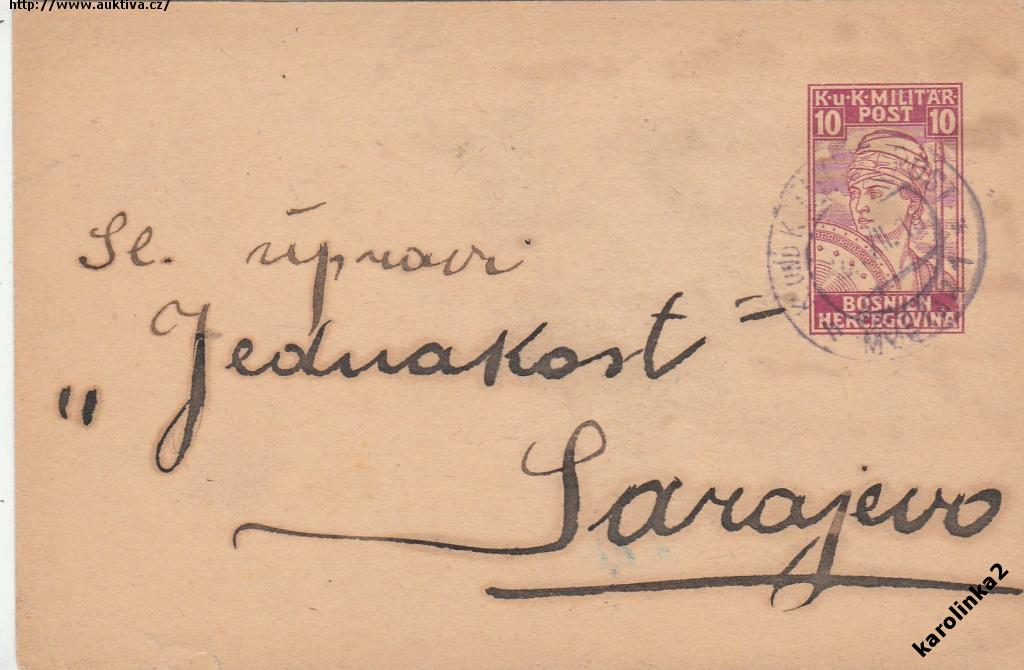 http://www.auktiva.cz/
K·u·K·MILITÄR
POST
10 10
BOSNIEN
HERCEGOVINA
Sl. úpravi
„Jednakost"
Sarajevo
karolinka2